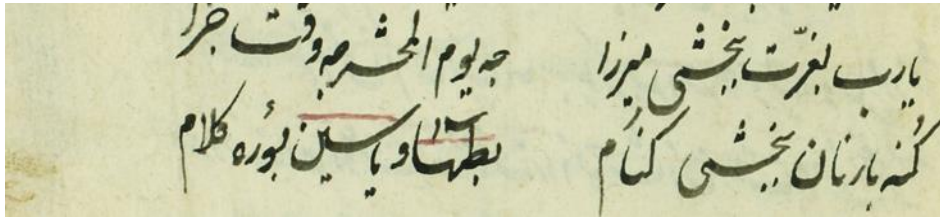 یارب بعزّت ببخشی میرزا جه یوم المحشر جه وقت جزا
کُنه بارنان ببخشی کنام بطها و یاسین بوُره کلام